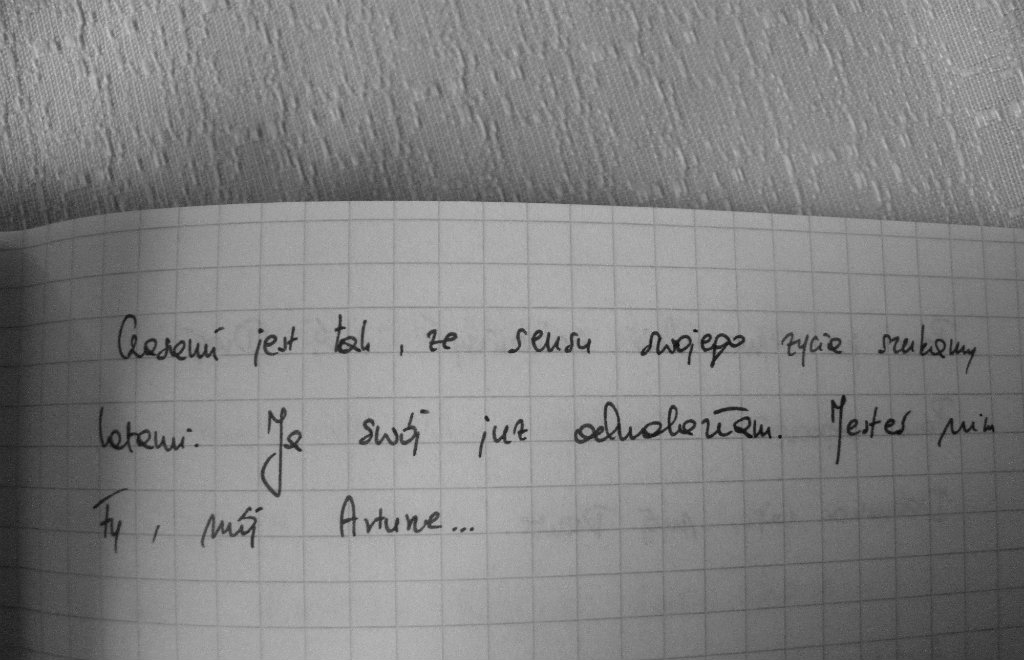 Czasami jest tak, ze sensu swojego zycia szukamy
latami. Ja swój juz odnalazłam. Jesteś nim
Ty, mój Arturze...